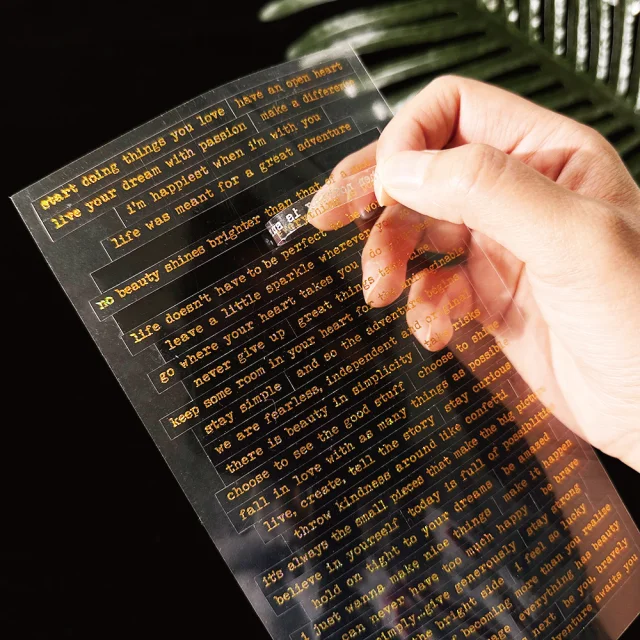 start doing things you love have an open heart
live your dream with passion make a difference
i'm happiest when i'm with you
life was meant for a great adventure
no beauty shines brighter than that of a
life doesn't have to be perfect to be
leave a little sparkle wherever you
go where your heart takes you do
never give up great things
keep some room in your heart for the unimaginable
stay simple and so the adventure
we are fearless, independent and original
there is beauty in simplicity risks
choose to see the good stuff choose to shine
fall in love with as many things as possible
live, create, tell the story stay curious
throw kindness around like confetti
it's always the small pieces that make the big picture
believe in yourself today is full of possibilities
hold on tight to your dreams be amazed
i just wanna make nice things make it happen
can never have too much happy be brave
simply.give generously stay strong
the bright side i feel so lucky
becoming more than you realise
everything has beauty
next be you, bravely
awaits you